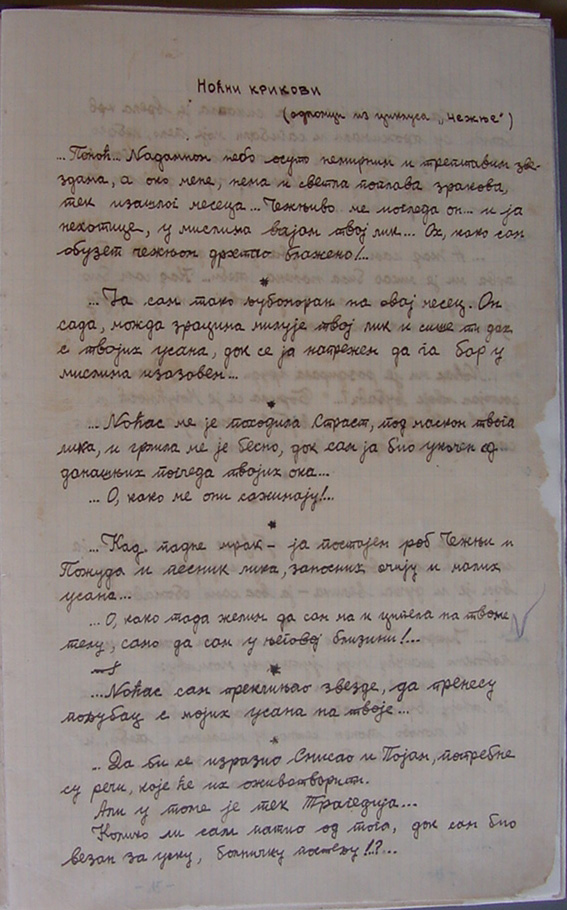 Ноћни крикови
(одломци из циклуса „Чежње“)
... Поноћ... Надамном небо осуто немирним и трептавим зве-
здама, а око мене, нема и светла поплава зракова,
тек изашлог месеца... Чежњиво ме погледа он... и ја
нехотице, у мислима вајам твој лик... Ох, како сам
обузет чежњом дрхтао блажено!...
*
... Ја сам тако љубоморан на овај месец. Он
сада, можда зрацима милује твој лик и сише ти дах
с твојих усана, док се ја напрежем да га бар у
мислима изазовем...
*
... Ноћас ме је походила Страст, под маском твога
лика, и грлила ме је бесно, док сам ја био укочен од
данашњих погледа твојих ока...
... О, како ме они сажимају!...
*
... Кад падне мрак – ја постајем роб Чежњи и
Пожуда и песник лика, заносних очију и малих
усана...
... О, како тада желим да сам ма и ципела на твоме
телу, само да сам у његовој близини!...
*
... Ноћас сам преклињао звезде, да пренесу
пољубац с мојих усана на твоје...
*
... Да би се изразио Смисао и Појам, потребне
су речи, које ће их оживотворити.
Али у томе је тек Трагедија...
Колико ли сам патио од тога, док сам био
везан за уску, болничку постељу!?...